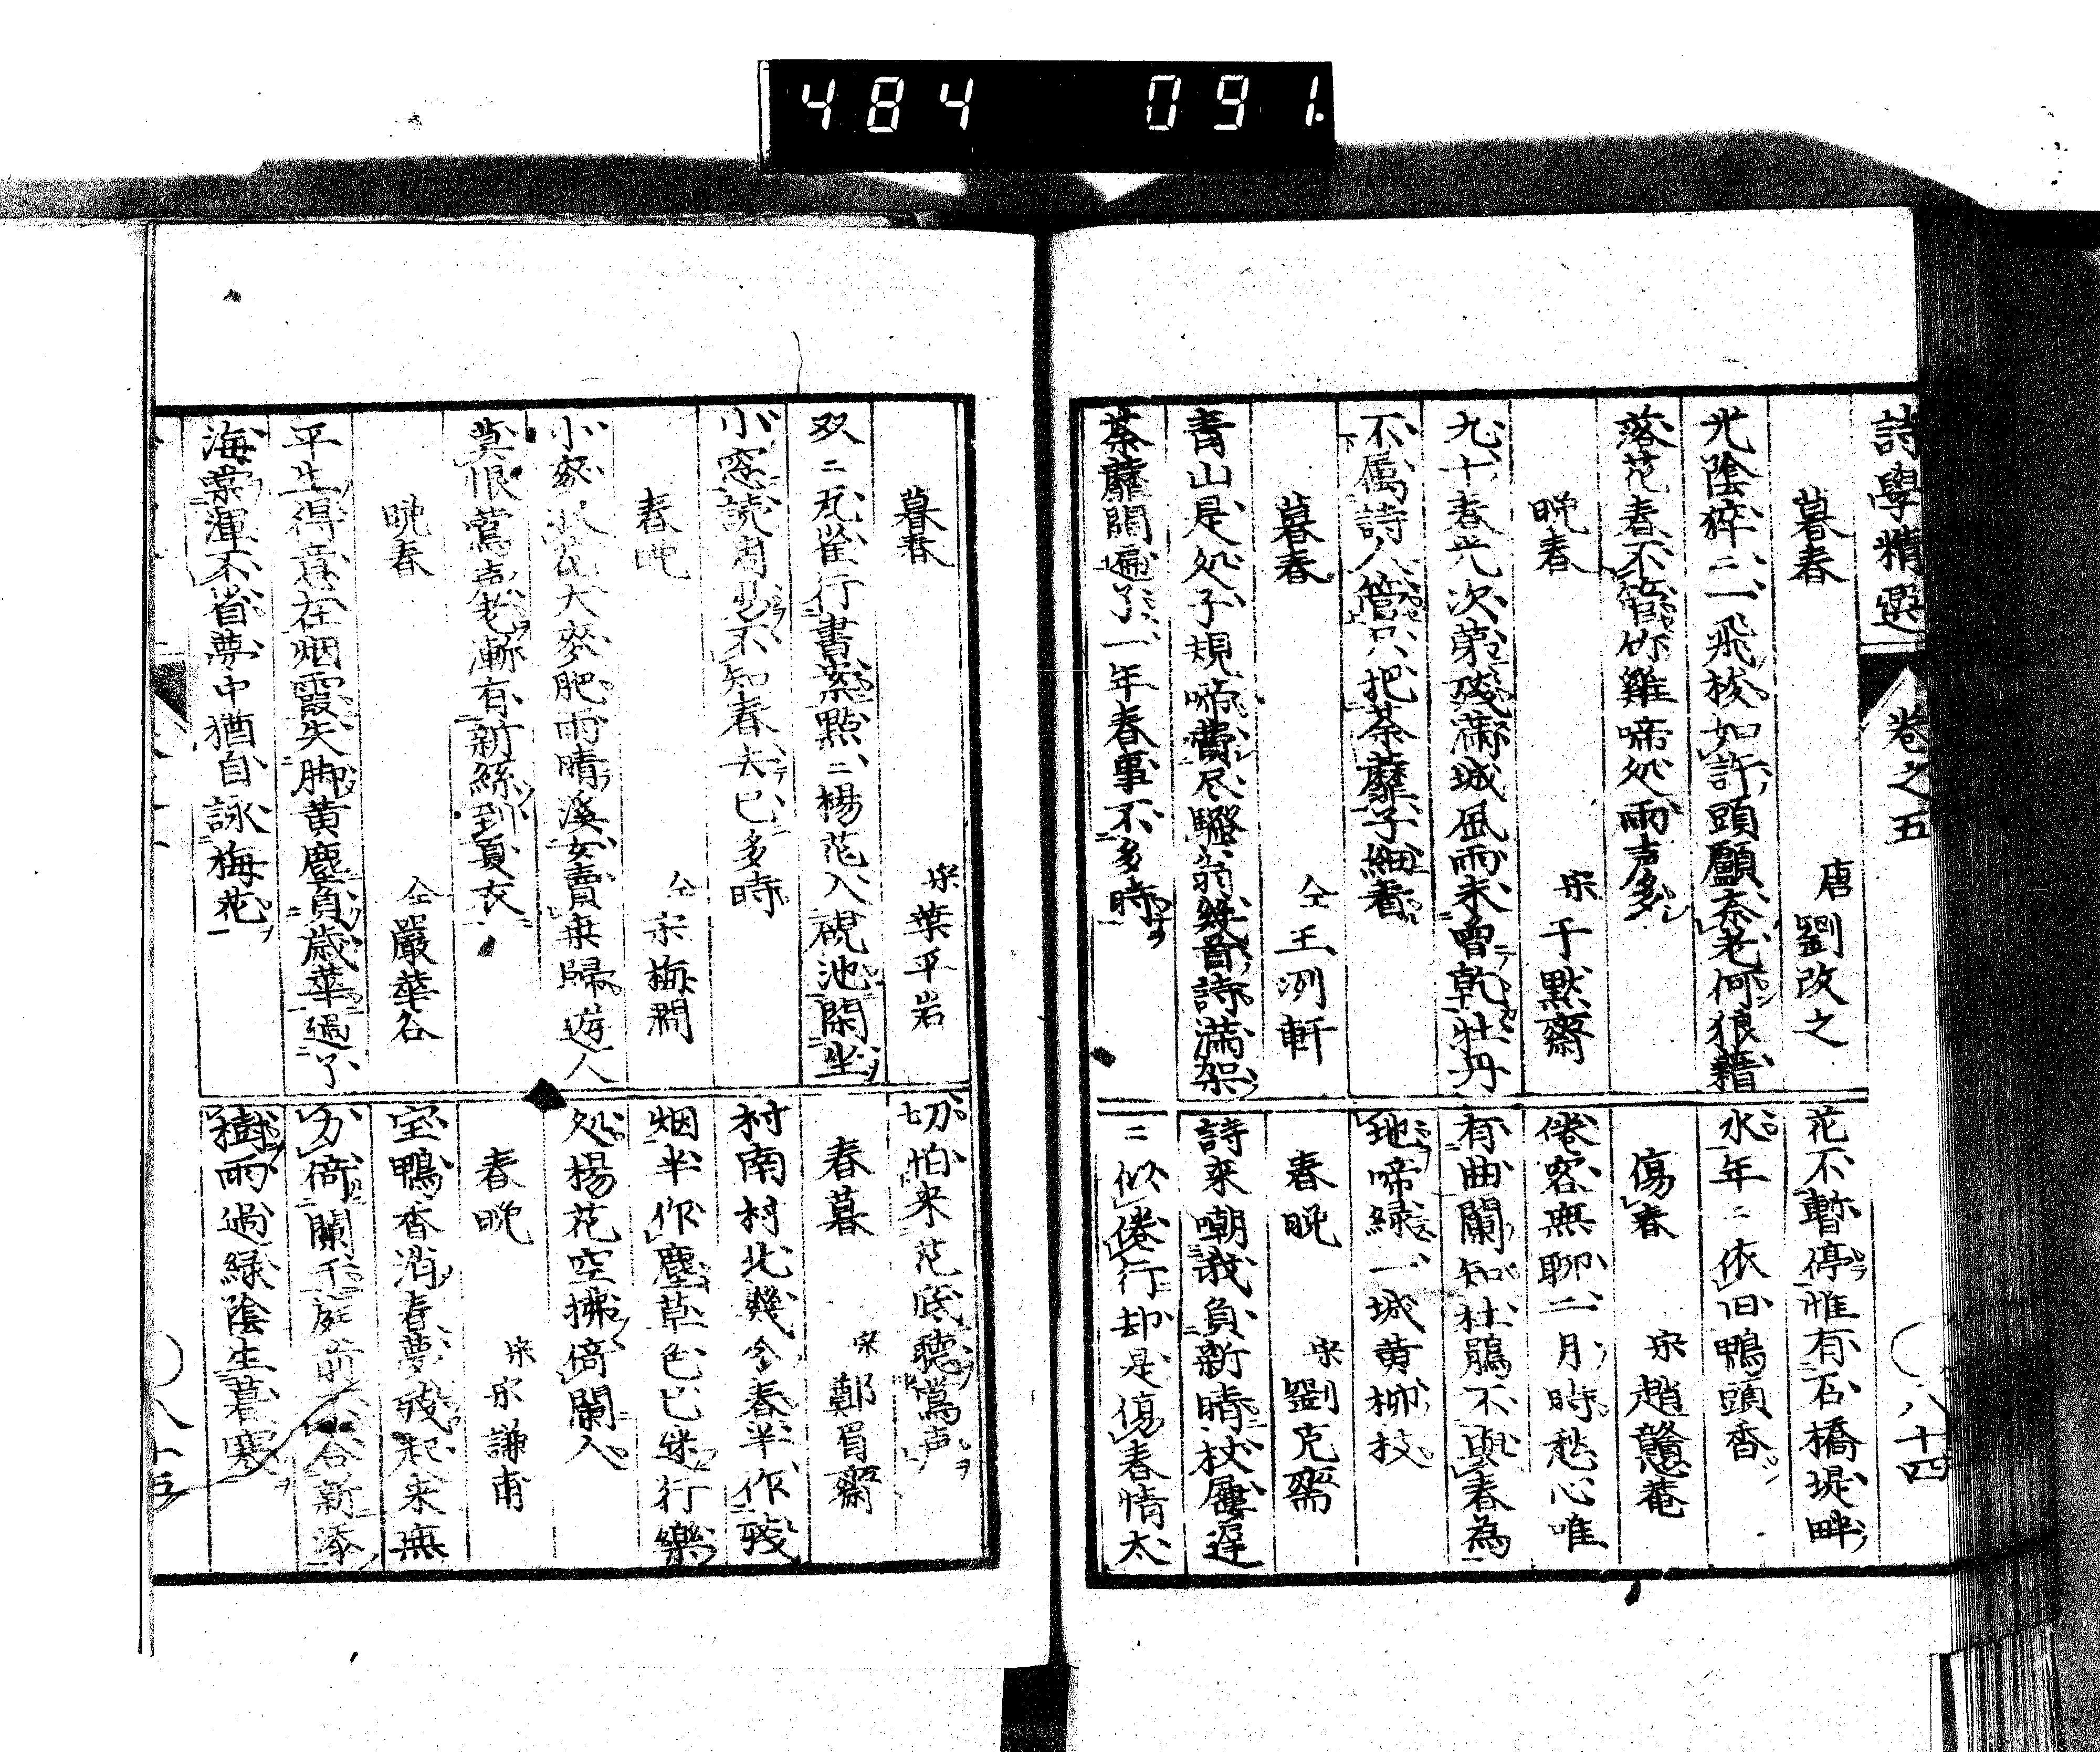 484 091.
詩學精選 卷之五 八十四
暮春 唐 劉改之
光陰猝二一飛梭如許頭顱奈老何狼藉
落花春不管竹雞啼処雨声多
晩春 宋 于默齋
九十春光次第殘滿城風雨未曽乾牡丹
不属詩人管只把荼蘼子細看
暮春 仝 王洌軒
青山是処子規啼費尽騷翁幾首詩滿架
荼蘼開遍了一年春事不多時
花不暫停惟有石橋堤畔
水年二依旧鴨頭香
傷春 宋 趙戇菴
倦客無聊二月時愁心唯
有曲闌知杜鵑不與春為
地啼緑一城黄柳枝
春晩 宋 劉克齋
詩来嘲我負新晴杖屨遅
二似倦行却是傷春情太
暮春 宋 葉平岩
双二瓦雀行書案點二楊花入硯池閑坐
小窓読周易不知春去已多時
春晩 仝 宋梅澗
小麥 大麥肥雨晴溪女賣 歸遊人
莫恨鶯声老漸有新絲到夏衣
晩春 仝 嚴華谷
平生得意在烟霞失脚黄塵負歳華過了
海棠渾不省夢中猶自詠梅花
切怕来花底聴鶯声
春暮 宋 鄭眉齋
村南村北幾令春半作殘
烟半作塵草色已迷行樂
処楊花空拂倚闌人
春晩 宋 宋謙甫
宝鴨香消春夢殘起来無
力倚闌干庭前 合新添
樹雨過緑陰生暮寒